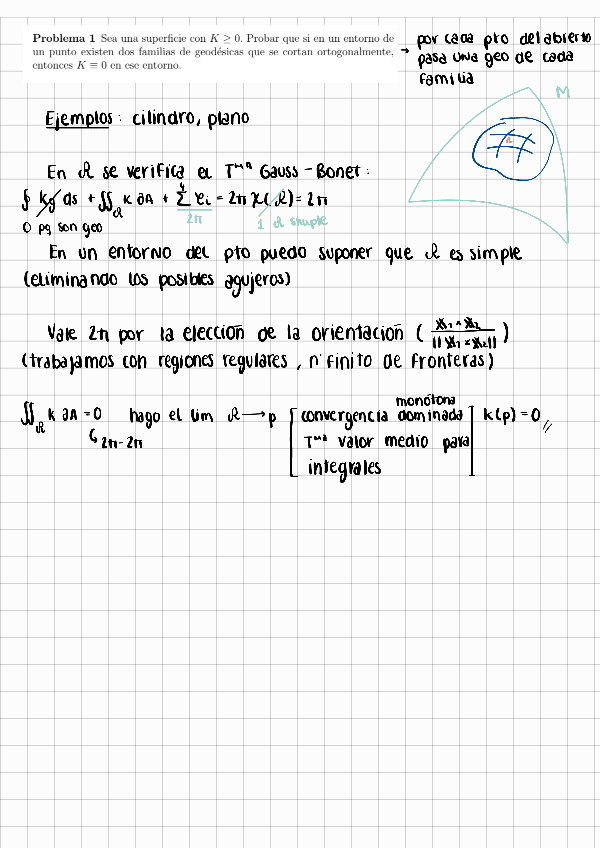 Problema 1 Sea una superficie con K ≥ 0. Probar que si en un entorno de
un punto existen dos familias de geodésicas que se cortan ortogonalmente,
entonces K ≡ 0 en ese entorno.
→ por cada pto del abierto
pasa una geo de cada
familia
M
R
Ejemplos: cilindro, plano
En R se verifica el Tᵐᵃ Gauss-Bonet:
∮ kg ds + ∬_R K dA + Σ⁴ φi = 2π χ(R) = 2π
0 pq son geo
2π
1 R simple
En un entorno del pto puedo suponer que R es simple
(eliminando los posibles agujeros)
Vale 2π por la elección de la orientación ( X₁ × X₂ / ||X₁ × X₂|| )
(trabajamos con regiones regulares, nº finito de fronteras)
monótona
∬_R K dA = 0 hago el lim R → p [ convergencia dominada ] K(p) = 0 //
↳ 2π - 2π
Tᵐᵃ valor medio para
integrales